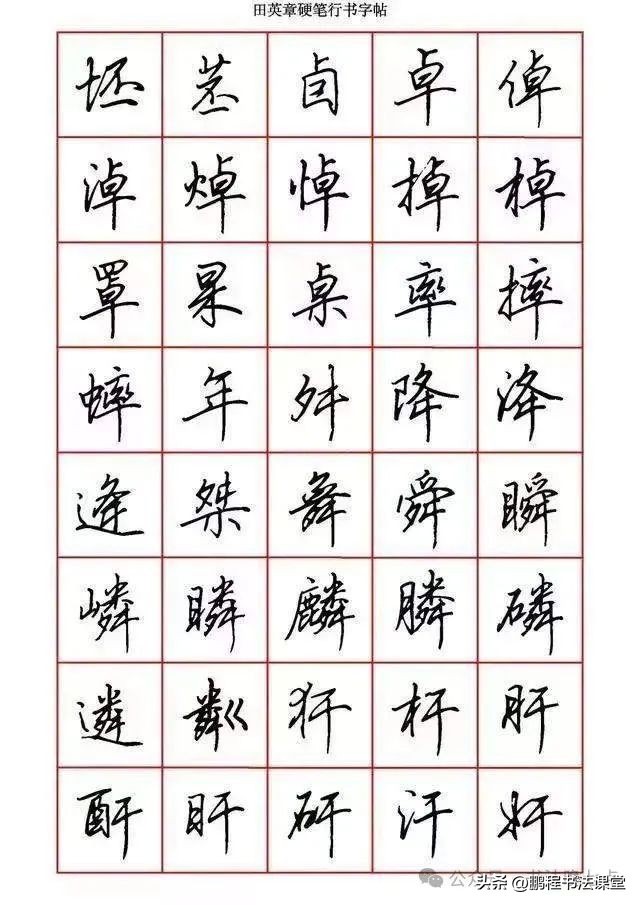 田英章硬笔行书字帖
坯 苤 卣 卓 倬
淖 焯 悼 掉 棹
罩 杲 桌 率 摔
蟀 年 舛 降 洚
逄 桀 舞 舜 瞬
嶙 瞵 麟 膦 磷
遴 粼 犴 杆 肝
酐 盰 矸 汗 奸
头条 @鹏程书法课堂